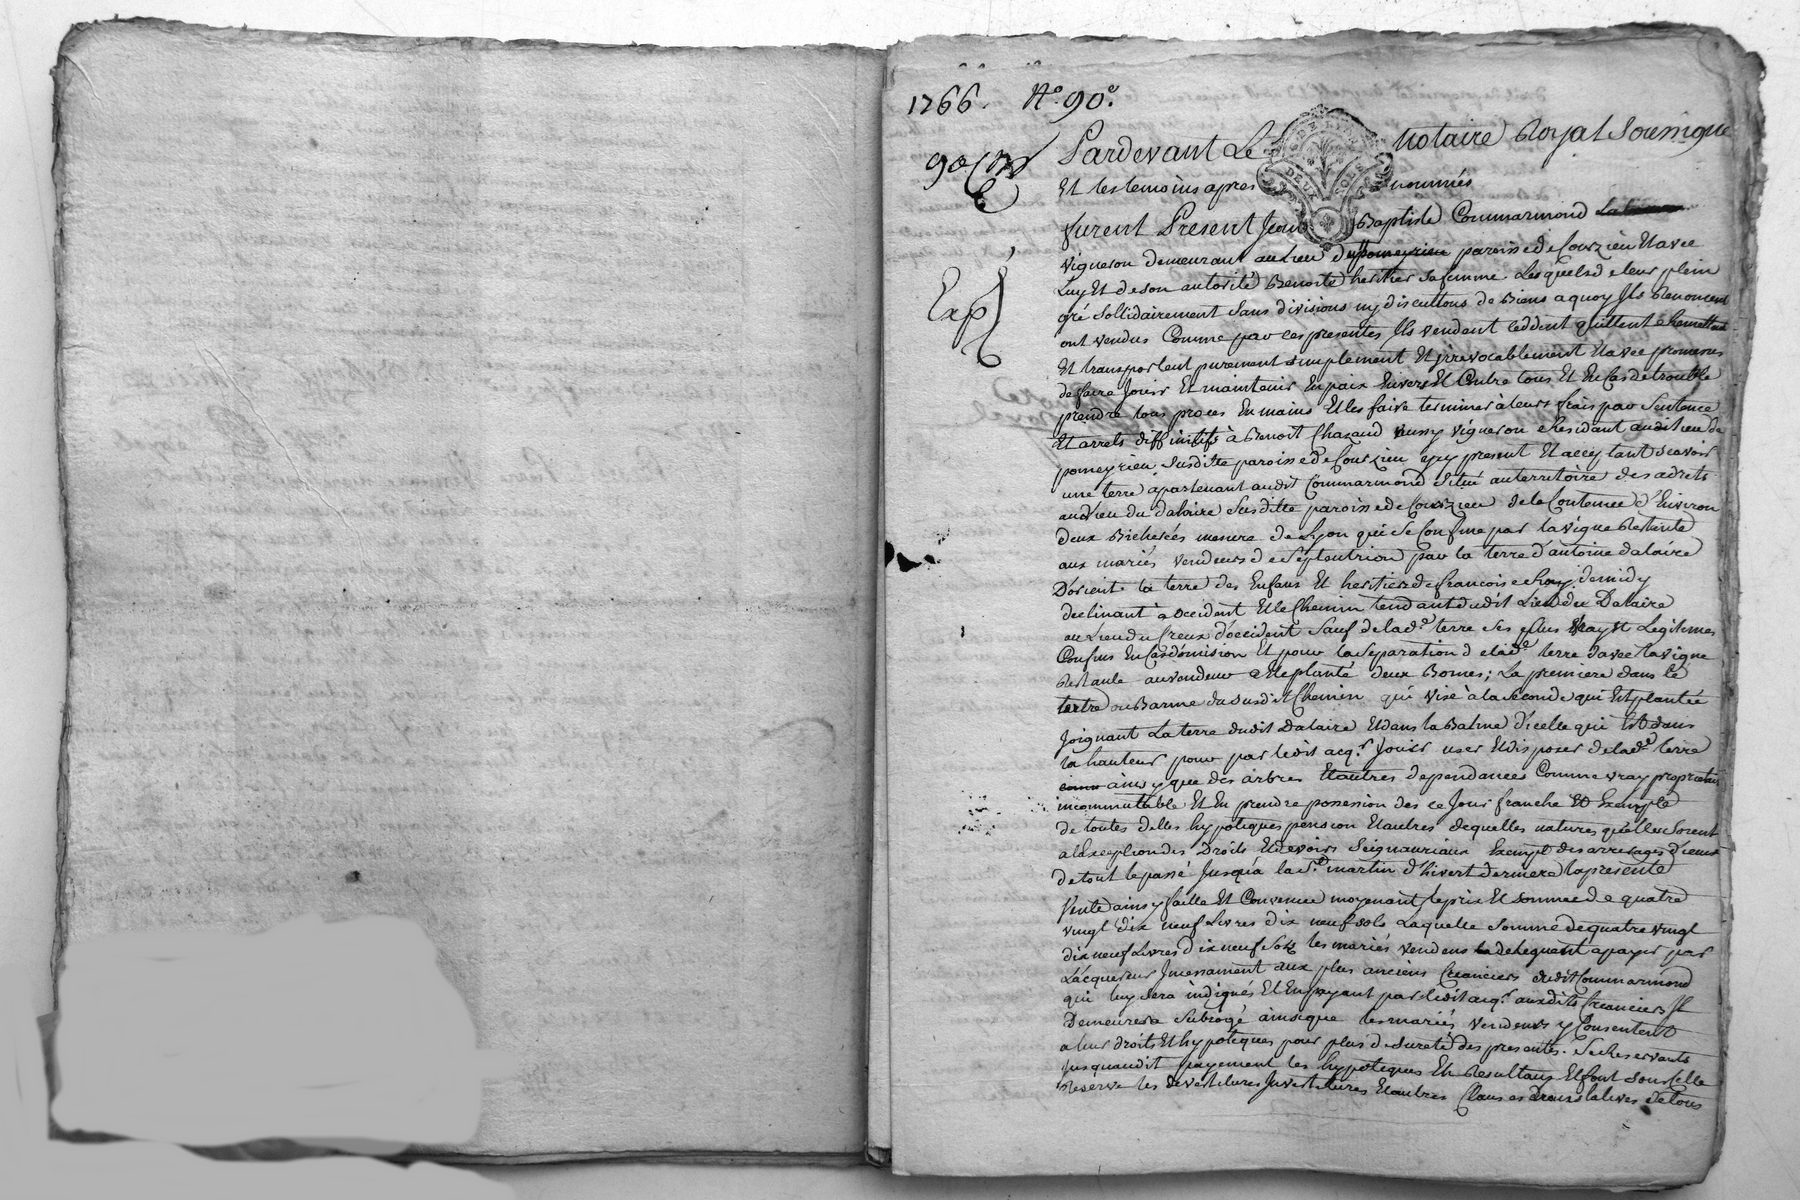 1766. N.o 90.e
Pardevant Le Notaire Royal Soussigné
DEUX SOLS
Et les temoins apres nommés
furent Present Jean Baptiste Commarmond
vigneron demeurant au Lieu de pomeyrieu paroisse de Courzieu Et avec
Luy Et de son autorité Benoite heritier sa femme. Lesquels de leur plein
gré Sollidairement Sans divisions ny discutions de Biens a quoy Ils Renoncent
ont vendus Comme par ces presentes Ils vendent ceddent quittent Remettent
Et transportent purement simplement Et jrrevocablement Et avec promesses
de faire Jouir Et maintenir En paix Envers Et Contre tous Et En Cas de trouble
prendre tous proces En mains Et les faire terminer à leurs frais par Sentence
Et arrets diffinitifs à Benoit Chazaud aussy vigneron Residant audit lieu de
pomeyrieu Susditte paroisse de Courzieu icy present Et acceptant Scavoir
une terre apartenant audit Commarmond Situé au territoire des adrets
au Lieu du dalaire Susditte paroisse de Courzieu de la Contenue d'Environ
deux Bicherées mesure de Lyon qui Se Confine par la vigne Restante
aux mariés vendeurs de Septentrion par la terre d'antoine dalaire
D'orient la terre des Enfans Et heritiers de francois demidy
declinant à occident Et le Chemin tendant dudit Lieu du Dalaire
au Lieu du Creux d'occident Sauf de lad.e terre Ses plus Vray Et Legitimes
Confins En Cas d'omision Et pour la Separation de lad.e terre d'avec la vigne
Restante au vendeur a Eté planté deux Bornes; La premiere dans le
tertre ou Barme du susdit Chemin qui vise à la Seconde qui Est plantée
Joignant La terre dudit Dalaire Et dans la Balme d'icelle qui Est dans
la hauteur pour par ledit acq.r Jouir user Et disposer de lad.e terre
ainsy que des arbres Et autres dependances Comme vray proprietaire
incommutable Et En prendre possession des ce Jour franche Et Exempte
de toutes dettes hypoteques pension Et autres dequelles natures qu'elles Soient
a l'Exception des Droits Et devoirs Seigneuriaux Exempt des arrerages d'iceux
de tout le passé Jusqu'à la S.t martin d'hivert derniere la presente
Vente ainsy faitte Et Convenue moyenant le prix Et Somme de quatre
vingt dix neuf Livres dix neuf sols Laquelle Somme de quatre vingt
dix neuf Livres dix neuf Sols les mariés vendeurs deleguent a payer par
L'acquereur Incessament aux plus anciens Creanciers dudit Commarmond
qui luy Sera indiqués Et En payant par ledit acq.r auxdits Creanciers Il
Demeurera Subrogé ainsi que les mariés vendeurs y Consentent
a leur droits Et hypoteques pour plus de Sureté des presentes. Se Reservants
Jusqu'audit payement les hypoteques En Resultans Et font Sous Celle
Reserve les devestitures Investitures Et autres Clauses translatives de tous
Exp.